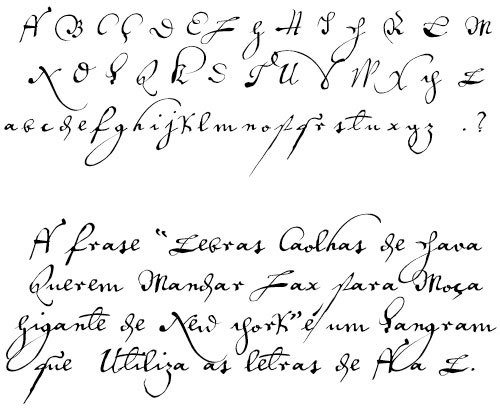 A B C Ç D E F G H I J K L M
N O P Q R S T U V W X Y Z
a b c d e f g h i j k l m n o p q r s t u x y z . ?
A frase "Zebras Caolhas de Java
Querem Mandar Fax para Moça
Gigante de New York" é um Pangram
que Utiliza as letras de A a Z.